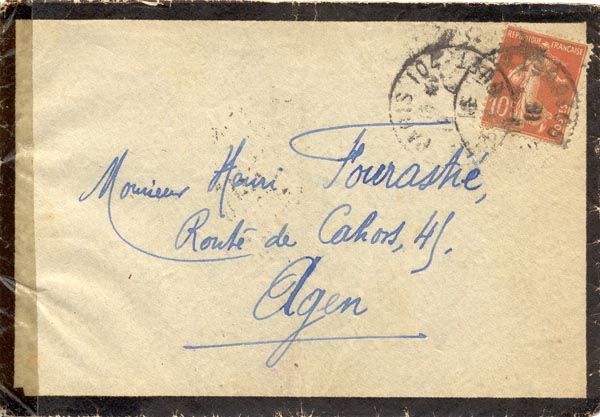 REPUBLIQUE FRANÇAISE
10
PARIS 104
Monsieur Henri Fourastié,
Route de Cahors, 45,
Agen